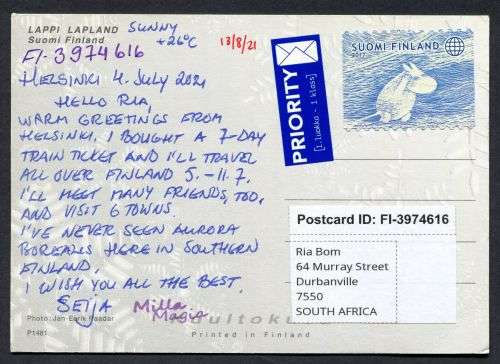 LAPPI LAPLAND
Suomi Finland
SUNNY
+26°C
13/8/21
FI-3974616
HELSINKI 4. JULY 2021
HELLO RIA,
WARM GREETINGS FROM
HELSINKI. I BOUGHT A 7-DAY
TRAIN TICKET AND I'LL TRAVEL
ALL OVER FINLAND 5.-11.7.
I'LL MEET MANY FRIENDS, TOO,
AND VISIT 6 TOWNS.
I'VE NEVER SEEN AURORA
BOREALIS HERE IN SOUTHERN
FINLAND.
I WISH YOU ALL THE BEST.
SEIJA
Milla
Photo: Jan-Eerik Paadar
P1481
Printed in Finland
PRIORITY
[1.luokka - 1 klass]
SUOMI FINLAND
2017
Postcard ID: FI-3974616
Ria Bom
64 Murray Street
Durbanville
7550
SOUTH AFRICA